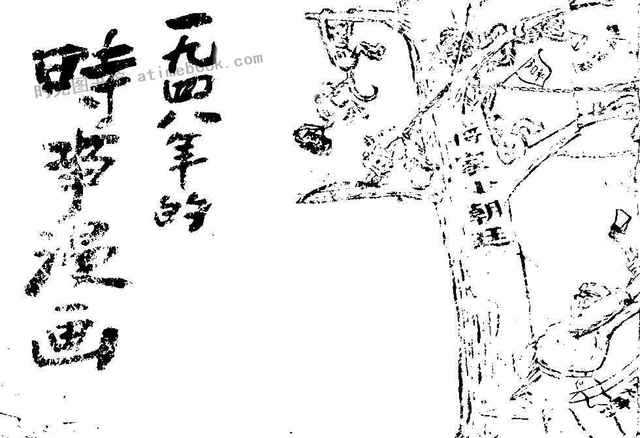 一九四八年的
時事漫画
atimebook.com
蒋家小朝廷